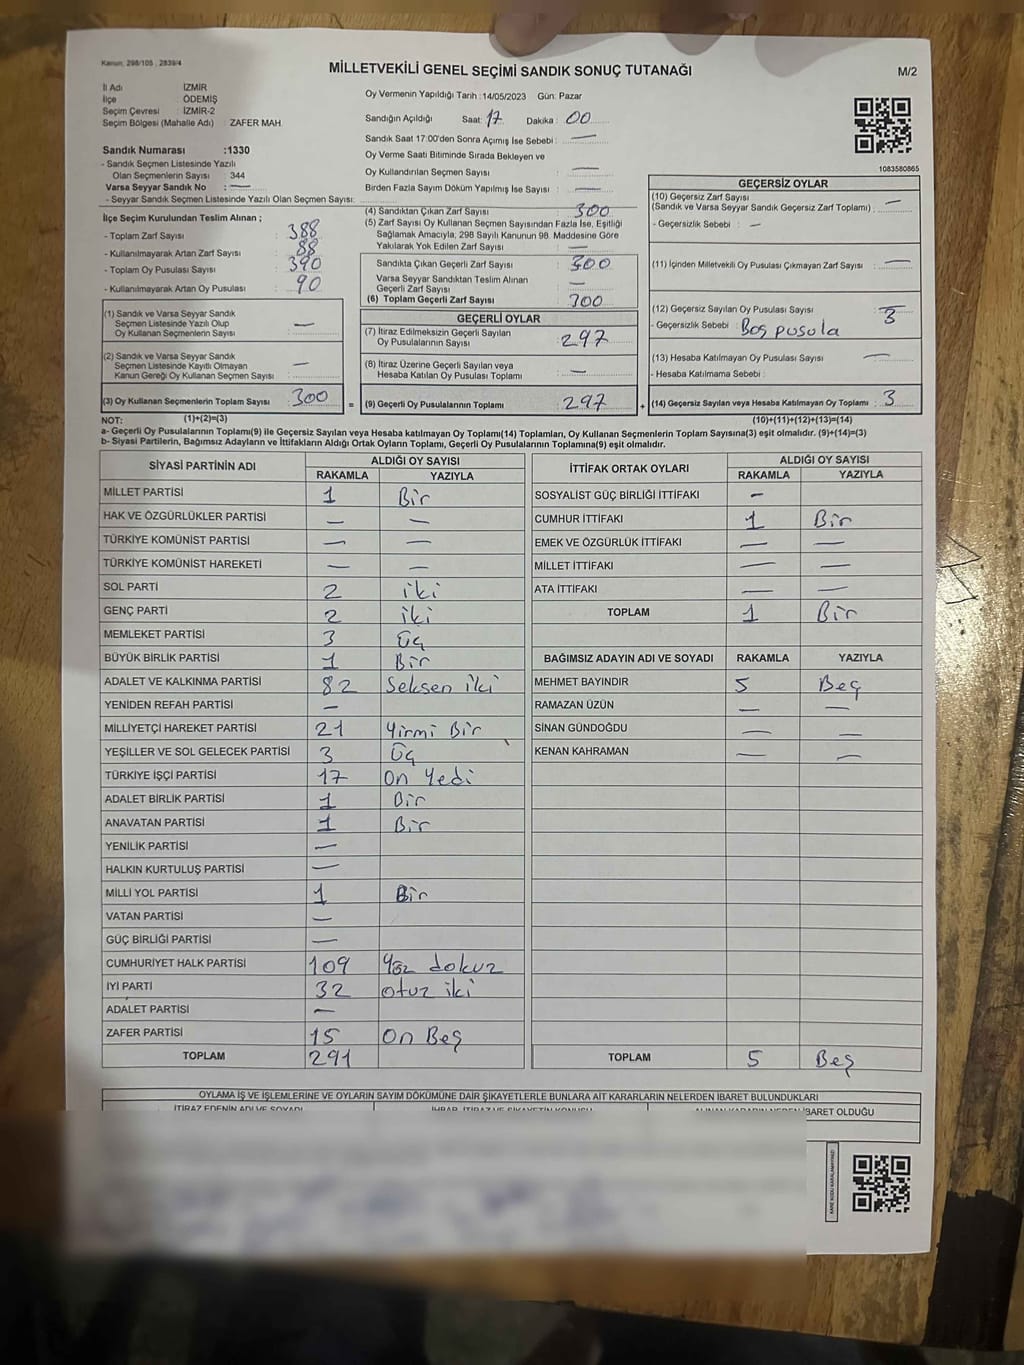 Kanun: 298/105 , 2839/4
MİLLETVEKİLİ GENEL SEÇİMİ SANDIK SONUÇ TUTANAĞI
M/2
İl Adı : İZMİR
İlçe : ÖDEMİŞ
Seçim Çevresi : İZMİR-2
Seçim Bölgesi (Mahalle Adı) : ZAFER MAH.
Sandık Numarası :1330
- Sandık Seçmen Listesinde Yazılı
Olan Seçmenlerin Sayısı : 344
Varsa Seyyar Sandık No : —
- Seyyar Sandık Seçmen Listesinde Yazılı Olan Seçmen Sayısı:
Oy Vermenin Yapıldığı Tarih :14/05/2023 Gün: Pazar
Sandığın Açıldığı Saat: 17 Dakika : 00
Sandık Saat 17:00'den Sonra Açımış İse Sebebi : —
Oy Verme Saati Bitiminde Sırada Bekleyen ve
Oy Kullandırılan Seçmen Sayısı : —
Birden Fazla Sayım Döküm Yapılmış İse Sayısı : —
1083580865
İlçe Seçim Kurulundan Teslim Alınan ;
- Toplam Zarf Sayısı : 388
- Kullanılmayarak Artan Zarf Sayısı : 88
- Toplam Oy Pusulası Sayısı : 390
- Kullanılmayarak Artan Oy Pusulası : 90
(1) Sandık ve Varsa Seyyar Sandık
Seçmen Listesinde Yazılı Olup
Oy Kullanan Seçmenlerin Sayısı : —
(2) Sandık ve Varsa Seyyar Sandık
Seçmen Listesinde Kayıtlı Olmayan
Kanun Gereği Oy Kullanan Seçmen Sayısı : —
(3) Oy Kullanan Seçmenlerin Toplam Sayısı : 300 =
(4) Sandıktan Çıkan Zarf Sayısı : 300
(5) Zarf Sayısı Oy Kullanan Seçmen Sayısından Fazla İse, Eşitliği
Sağlamak Amacıyla, 298 Sayılı Kanunun 98. Maddesine Göre
Yakılarak Yok Edilen Zarf Sayısı : —
Sandıkta Çıkan Geçerli Zarf Sayısı : 300
Varsa Seyyar Sandıktan Teslim Alınan
Geçerli Zarf Sayısı : —
(6) Toplam Geçerli Zarf Sayısı : 300
GEÇERLİ OYLAR
(7) İtiraz Edilmeksizin Geçerli Sayılan
Oy Pusulalarının Sayısı : 297
(8) İtiraz Üzerine Geçerli Sayılan veya
Hesaba Katılan Oy Pusulası Toplamı : —
(9) Geçerli Oy Pusulalarının Toplamı : 297 +
GEÇERSİZ OYLAR
(10) Geçersiz Zarf Sayısı
(Sandık ve Varsa Seyyar Sandık Geçersiz Zarf Toplamı) : —
- Geçersizlik Sebebi : —
(11) İçinden Milletvekili Oy Pusulası Çıkmayan Zarf Sayısı : —
(12) Geçersiz Sayılan Oy Pusulası Sayısı : 3
- Geçersizlik Sebebi : Boş pusula
(13) Hesaba Katılmayan Oy Pusulası Sayısı : —
- Hesaba Katılmama Sebebi :
(14) Geçersiz Sayılan veya Hesaba Katılmayan Oy Toplamı : 3
NOT: (1)+(2)=(3) (10)+(11)+(12)+(13)=(14)
a- Geçerli Oy Pusulalarının Toplamı(9) ile Geçersiz Sayılan veya Hesaba katılmayan Oy Toplamı(14) Toplamları, Oy Kullanan Seçmenlerin Toplam Sayısına(3) eşit olmalıdır. (9)+(14)=(3)
b- Siyasi Partilerin, Bağımsız Adayların ve İttifakların Aldığı Ortak Oyların Toplamı, Geçerli Oy Pusulalarının Toplamına(9) eşit olmalıdır.
SİYASİ PARTİNİN ADI ALDIĞI OY SAYISI
RAKAMLA YAZIYLA
MİLLET PARTİSİ 1 Bir
HAK VE ÖZGÜRLÜKLER PARTİSİ — —
TÜRKİYE KOMÜNİST PARTİSİ — —
TÜRKİYE KOMÜNİST HAREKETİ — —
SOL PARTİ 2 iki
GENÇ PARTİ 2 iki
MEMLEKET PARTİSİ 3 Üç
BÜYÜK BİRLİK PARTİSİ 1 Bir
ADALET VE KALKINMA PARTİSİ 82 Seksen iki
YENİDEN REFAH PARTİSİ —
MİLLİYETÇİ HAREKET PARTİSİ 21 Yirmi Bir
YEŞİLLER VE SOL GELECEK PARTİSİ 3 Üç
TÜRKİYE İŞÇİ PARTİSİ 17 On Yedi
ADALET BİRLİK PARTİSİ 1 Bir
ANAVATAN PARTİSİ 1 Bir
YENİLİK PARTİSİ —
HALKIN KURTULUŞ PARTİSİ —
MİLLİ YOL PARTİSİ 1 Bir
VATAN PARTİSİ —
GÜÇ BİRLİĞİ PARTİSİ —
CUMHURİYET HALK PARTİSİ 109 Yüz dokuz
İYİ PARTİ 32 otuz iki
ADALET PARTİSİ —
ZAFER PARTİSİ 15 On Beş
TOPLAM 291
İTTİFAK ORTAK OYLARI ALDIĞI OY SAYISI
RAKAMLA YAZIYLA
SOSYALİST GÜÇ BİRLİĞİ İTTİFAKI —
CUMHUR İTTİFAKI 1 Bir
EMEK VE ÖZGÜRLÜK İTTİFAKI — —
MİLLET İTTİFAKI — —
ATA İTTİFAKI — —
TOPLAM 1 Bir
BAĞIMSIZ ADAYIN ADI VE SOYADI RAKAMLA YAZIYLA
MEHMET BAYINDIR 5 Beş
RAMAZAN ÜZÜN — —
SİNAN GÜNDOĞDU — —
KENAN KAHRAMAN — —
TOPLAM 5 Beş
OYLAMA İŞ VE İŞLEMLERİNE VE OYLARIN SAYIM DÖKÜMÜNE DAİR ŞİKAYETLERLE BUNLARA AİT KARARLARIN NELERDEN İBARET BULUNDUKLARI
İTİRAZ EDENİN ADI VE SOYADI İHBAR, İTİRAZ VE ŞİKAYETİN KONUSU ALINAN KARARIN NEDEN İBARET OLDUĞU